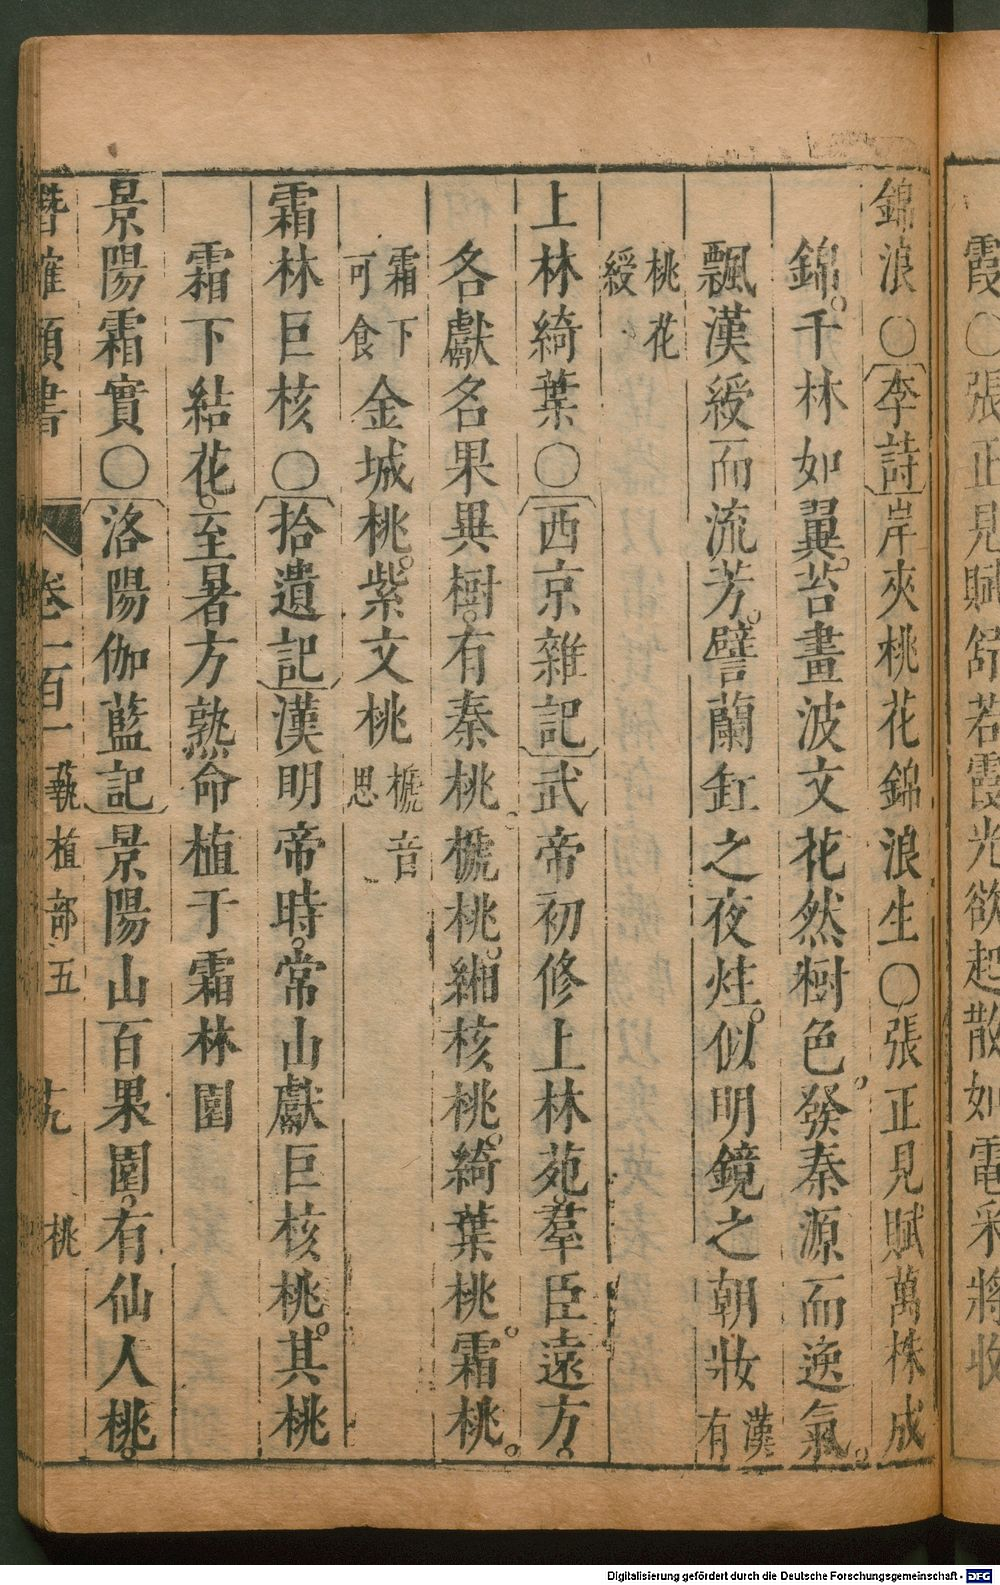 霞〇張正見賦舒若霞光欲起散如電采將收
錦浪〇李詩岸夾桃花錦浪生〇張正見賦萬株成
錦。千林如翼。苔畫波文花然樹色。發秦源而逸氣。
飄漢綬而流芳。譬蘭缸之夜炷。似明鏡之朝妝漢有
桃花綬
上林綺葉〇西京雜記武帝初修上林苑。羣臣遠方。
各獻名果異樹。有秦桃。榹桃。緗核桃。綺葉桃。霜桃。
霜下可食金城桃。紫文桃榹音思
霜林巨核〇拾遺記漢明帝時。常山獻巨核桃。其桃
霜下結花。至暑方熟命植于霜林園
景陽霜實〇洛陽伽藍記景陽山百果園。有仙人桃。
潛確類書 卷一百一 蓺植部五 十九 桃
Digitalisierung gefördert durch die Deutsche Forschungsgemeinschaft - DFG